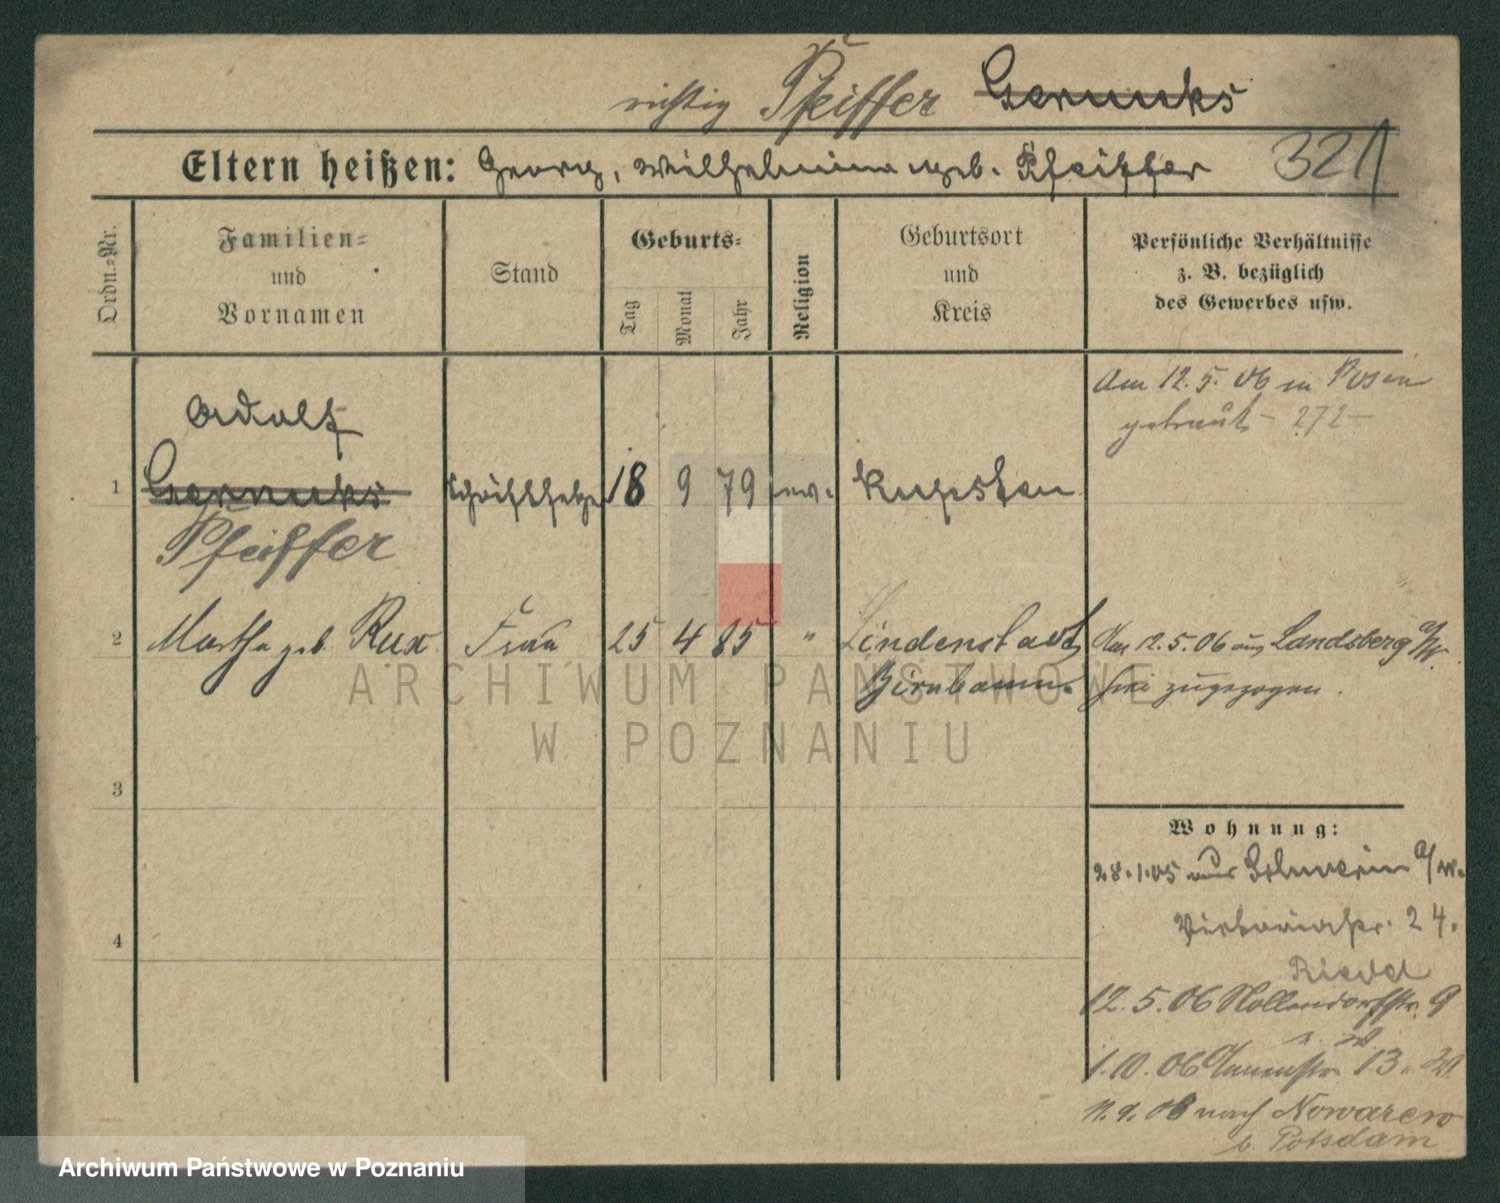 richtig Pfeiffer Gernucks
Eltern heißen: Georg, Wilhelmine geb. Pfeiffer 321
Ordn.-Nr.
Familien-
und
Vornamen
Stand
Geburts-
Tag
Monat
Jahr
Religion
Geburtsort
und
Kreis
Persönliche Verhältnisse
z. B. bezüglich
des Gewerbes usw.
Am 12.5.06 in Posen
getraut - 272 -
Adolf
1 Gernucks Schriftsetzer 18 9 79 ev. Kupsten
Pfeiffer
2 Martha geb. Rux Frau 25 4 85 " Lindenstadt Am 12.5.06 aus Landsberg a/W.
Birnbaum. hier zugezogen.
ARCHIWUM PAŃSTWOWE
W POZNANIU
3
4
Wohnung:
28.1.05 aus Schwerin a/W.
Viktoriastr. 24.
Riedel
12.5.06 Nollendorfstr. 9
1.10.06 13.
08 nach Nowawes
b. Potsdam
Archiwum Państwowe w Poznaniu